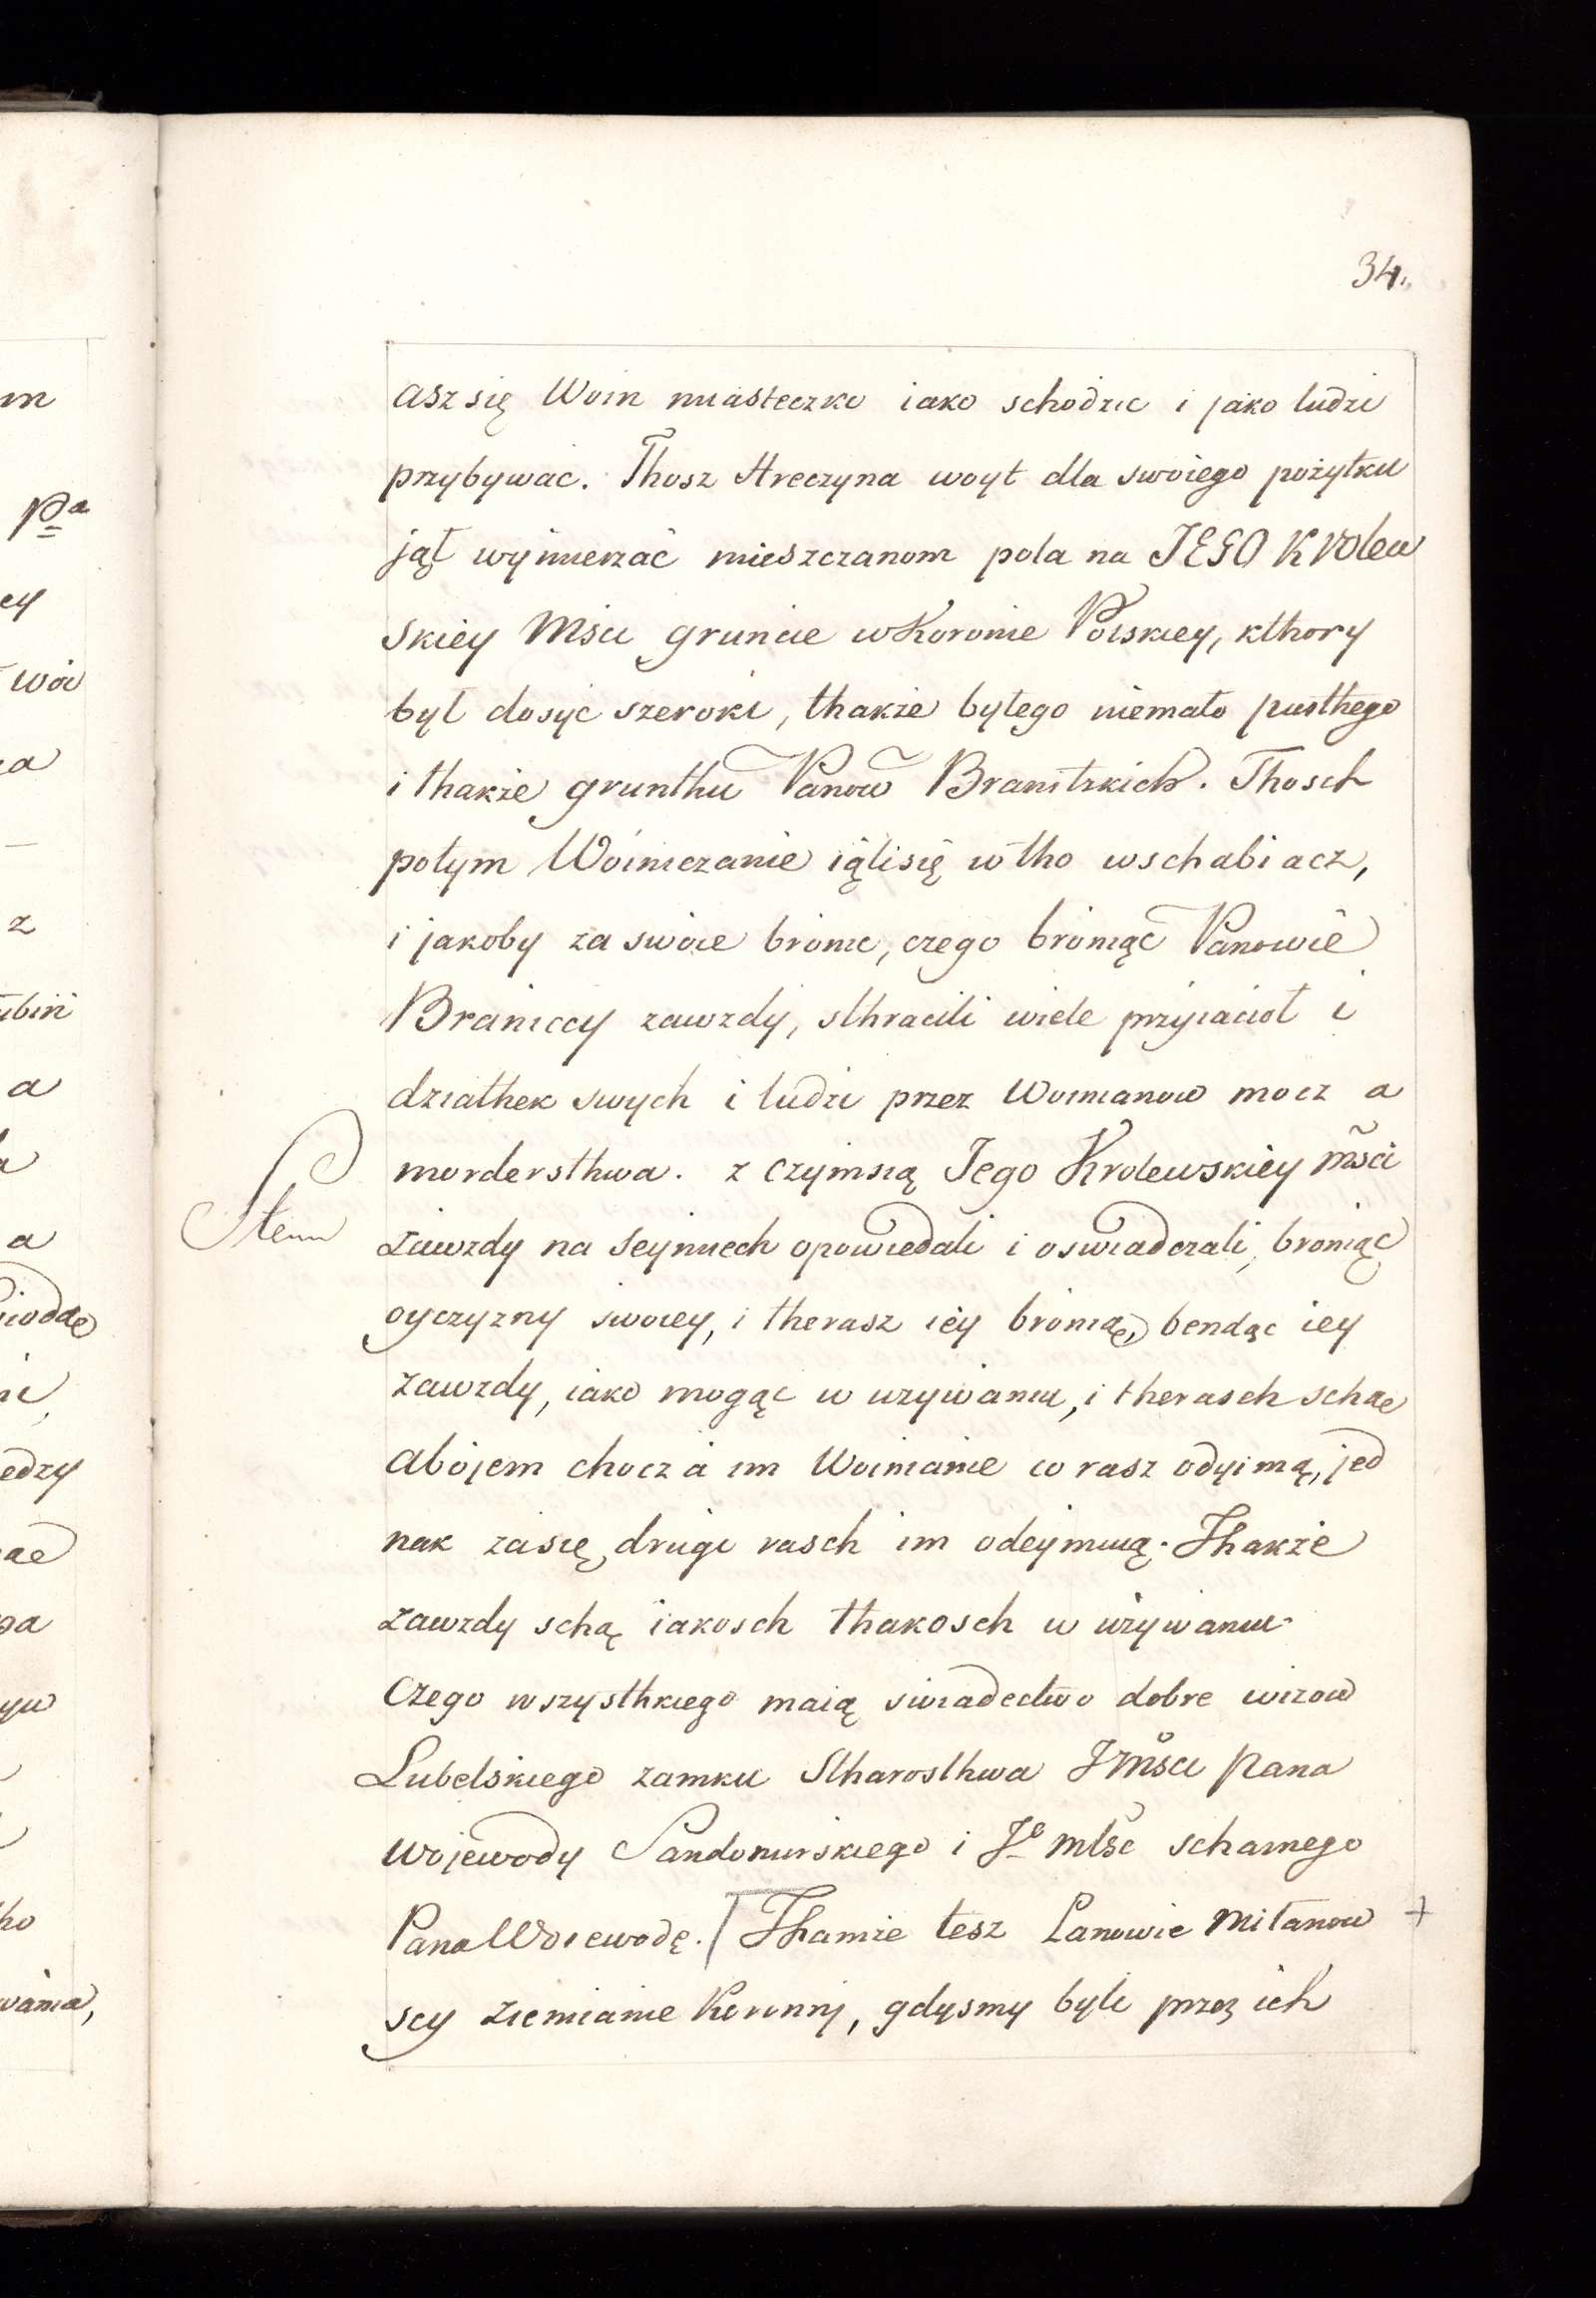 34.
asz się Woin miasteczko iako schodzic i jako ludzi
przybywac. Thosz Hreczyna woyt dla swoiego pożytku
jął wymierzać mieszczanom pola na JEGO Krolew
skiey Msci gruncie w Koronie Polskiey, kthory
był dosyć szeroki, thakże byłego niemało pusthego
i thakże grunthu Panow Branitzkich. Thosch
potym Woiniczanie ięli się w tho wschabiacz,
i jakoby za swoie bronic, czego broniąc Panowie
Braniccy zawzdy, sthracili wiele przyiacioł i
dziathek swych i ludzi przez Woinianow mocz a
mordersthwa. z czym są Jego Krolewskiey Msci
Item
zawzdy na seymiech opowiedali i oswiadczali, broniąc
oyczyzny swoiey, i therasz iey bronią, bendąc iey
zawzdy, iako mogąc w uzywaniu, i therasch schae
abojem chocza im Woinianie co rasz odyimą, jed
nak zasię drugi rasch im odeymuią. Thakże
zawzdy schą iakosch thakosch w używaniu.
Czego wszysthkiego maią swiadectwo dobre wizow
Lubelskiego zamku Stharosthwa JMsci Pana
Wojewody Sandomirskiego i Je Mlsc schamego
Pana Woiewodę. Thamże tesz Panowie Mitanow +
scy ziemianie Koronni, gdysmy byli przez ich
m
Pa
ey
woi
a
z
ubin
a
a
a
edzy
ae
pa
yw
ho
wania,